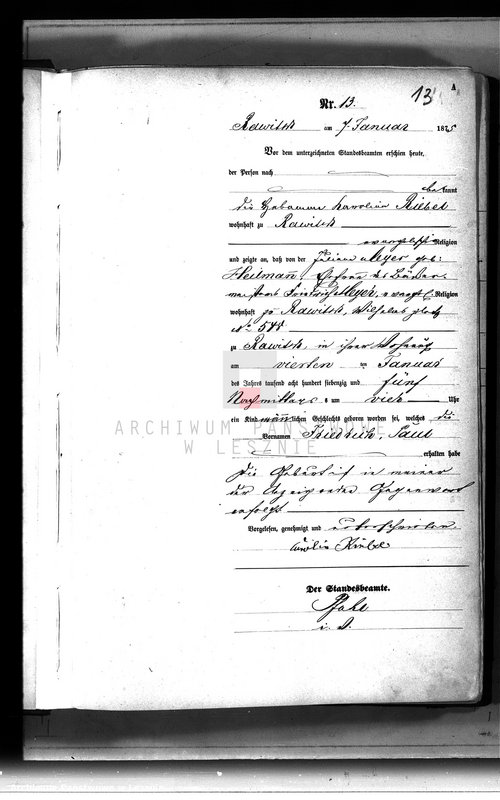 13
A
Nr. 13.
Rawitsch am 7. Januar 1875
Vor dem unterzeichneten Standesbeamten erschien heute,
der Person nach
bekannt
die Hebamme Karoline
wohnhaft zu Rawitsch
evangelischer Religion
und zeigte an, daß von der Juliane Meyer geb:
Heilmann, Ehefrau des Bäcker-
meisters Friedrich Meyer, evangel. Religion
wohnhaft zu Rawitsch, Wilhelms platz
No
zu Rawitsch, in ihrer Wohnung
am vierten ten Januar
des Jahrs tausend acht hundert siebenzig und fünf
Nachmittags um vier Uhr
ein Kind männlichen Geschlechts geboren worden sei, welches die
ARCHIWUM PAŃSTWOWE
Vornamen Friedrich, Paul
W LESZNIE
erhalten habe
Die Geburt ist in meiner
der Anzeigenden Gegenwart
erfolgt
Vorgelesen, genehmigt und unterschrieben.
Der Standesbeamte.
i. V.